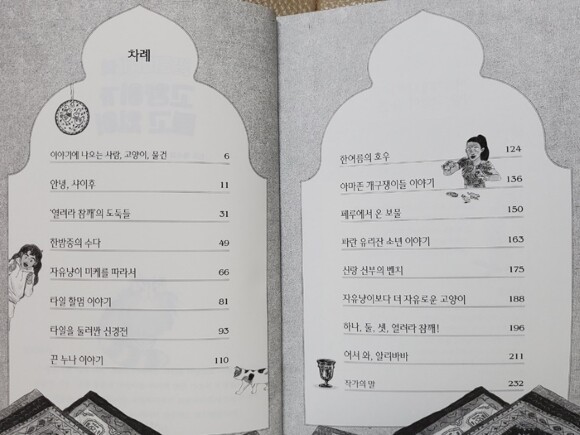 차례
이야기에 나오는 사람, 고양이, 물건 6
안녕, 사이후 11
'열려라 참깨'의 도둑들 31
한밤중의 수다 49
자유냥이 미케를 따라서 66
타일 할멈 이야기 81
타일을 둘러싼 신경전 93
끈 누나 이야기 110
한여름의 호우 124
아마존 개구쟁이들 이야기 136
페루에서 온 보물 150
파란 유리잔 소년 이야기 163
신랑 신부의 벤치 175
자유냥이보다 더 자유로운 고양이 188
하나, 둘, 셋, 열려라 참깨! 196
어서 와, 알리바바 211
작가의 말 232